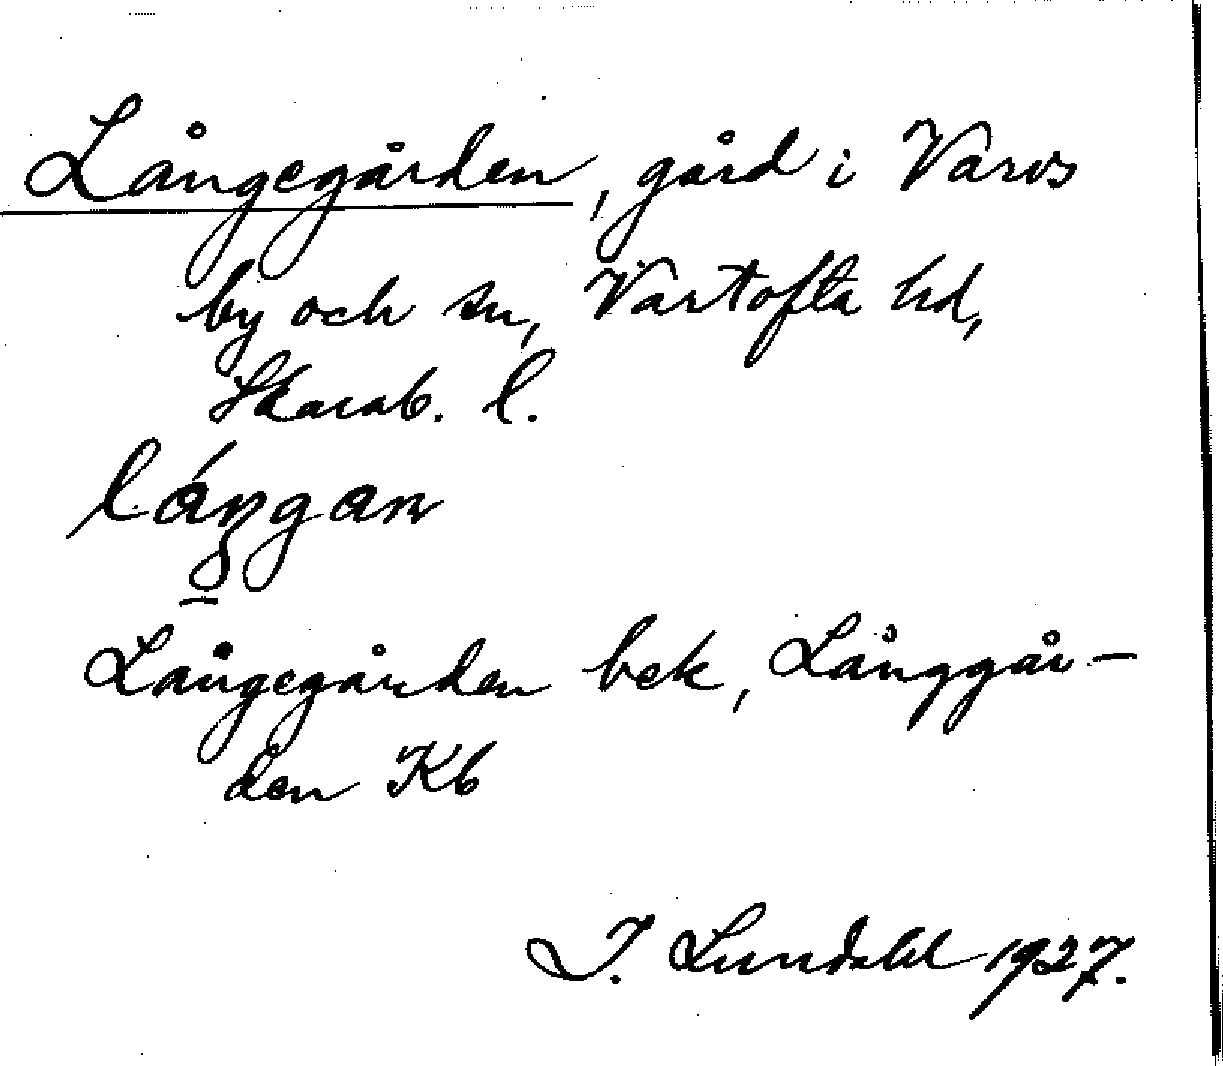 Långegården, gård i Varvs
by och sn, Vartofta hd,
Skarab. l.
Långegården bek, Långgår-
den Kb
I. Lundahl 1927.